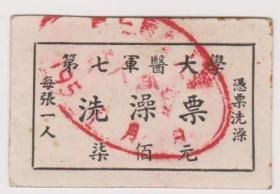 第七軍醫大學
洗澡票
柒佰元
每張一人
憑票洗澡